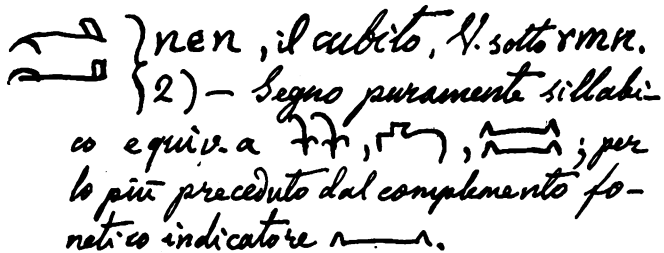 nen, il cubito, V. sotto rmn.
2) — Segno puramente sillabi-
co equiv. a , , ; per
lo più preceduto dal complemento fo-
netico indicatore .